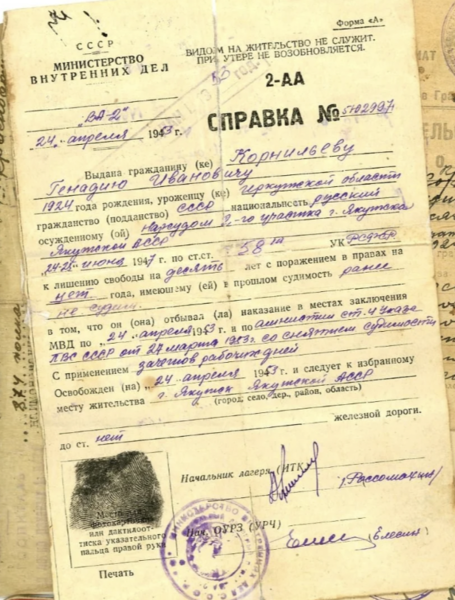 Форма «А»
СССР
МИНИСТЕРСТВО
ВНУТРЕННИХ ДЕЛ
ВИДОМ НА ЖИТЕЛЬСТВО НЕ СЛУЖИТ.
ПРИ УТЕРЕ НЕ ВОЗОБНОВЛЯЕТСЯ.
2-АА
24 апреля 1953 г.
СПРАВКА №
Выдана гражданину (ке) Корнильеву
Генадию Ивановичу
1924 года рождения, уроженцу (ке) Иркутской области
гражданство (подданство) СССР национальность русский
осужденному (ой) нарсудом 2-го участка г. Якутска
Якутской АССР
июня 1947 г. по ст.ст. 58 УК РСФСР
к лишению свободы на десять лет с поражением в правах на
нет года, имеющему (ей) в прошлом судимость ранее
не судим
в том, что он (она) отбывал (ла) наказание в местах заключения
МВД по 24 апреля 1953 г. и по амнистии ст. 4 Указа
ПВС СССР от 27 марта 1953 г. со снятием судимости
С применением зачетов рабочих дней
Освобожден (на) 24 апреля 1953 и следует к избранному
месту жительства г. Якутск Якутской АССР
(город, село, дер., район, область)
до ст. нет железной дороги.
Начальник лагеря (ИТК)
Место для
или дактилоот-
тиска указательного
пальца правой руки
Нач. ОУРЗ (УРЧ)
Печать